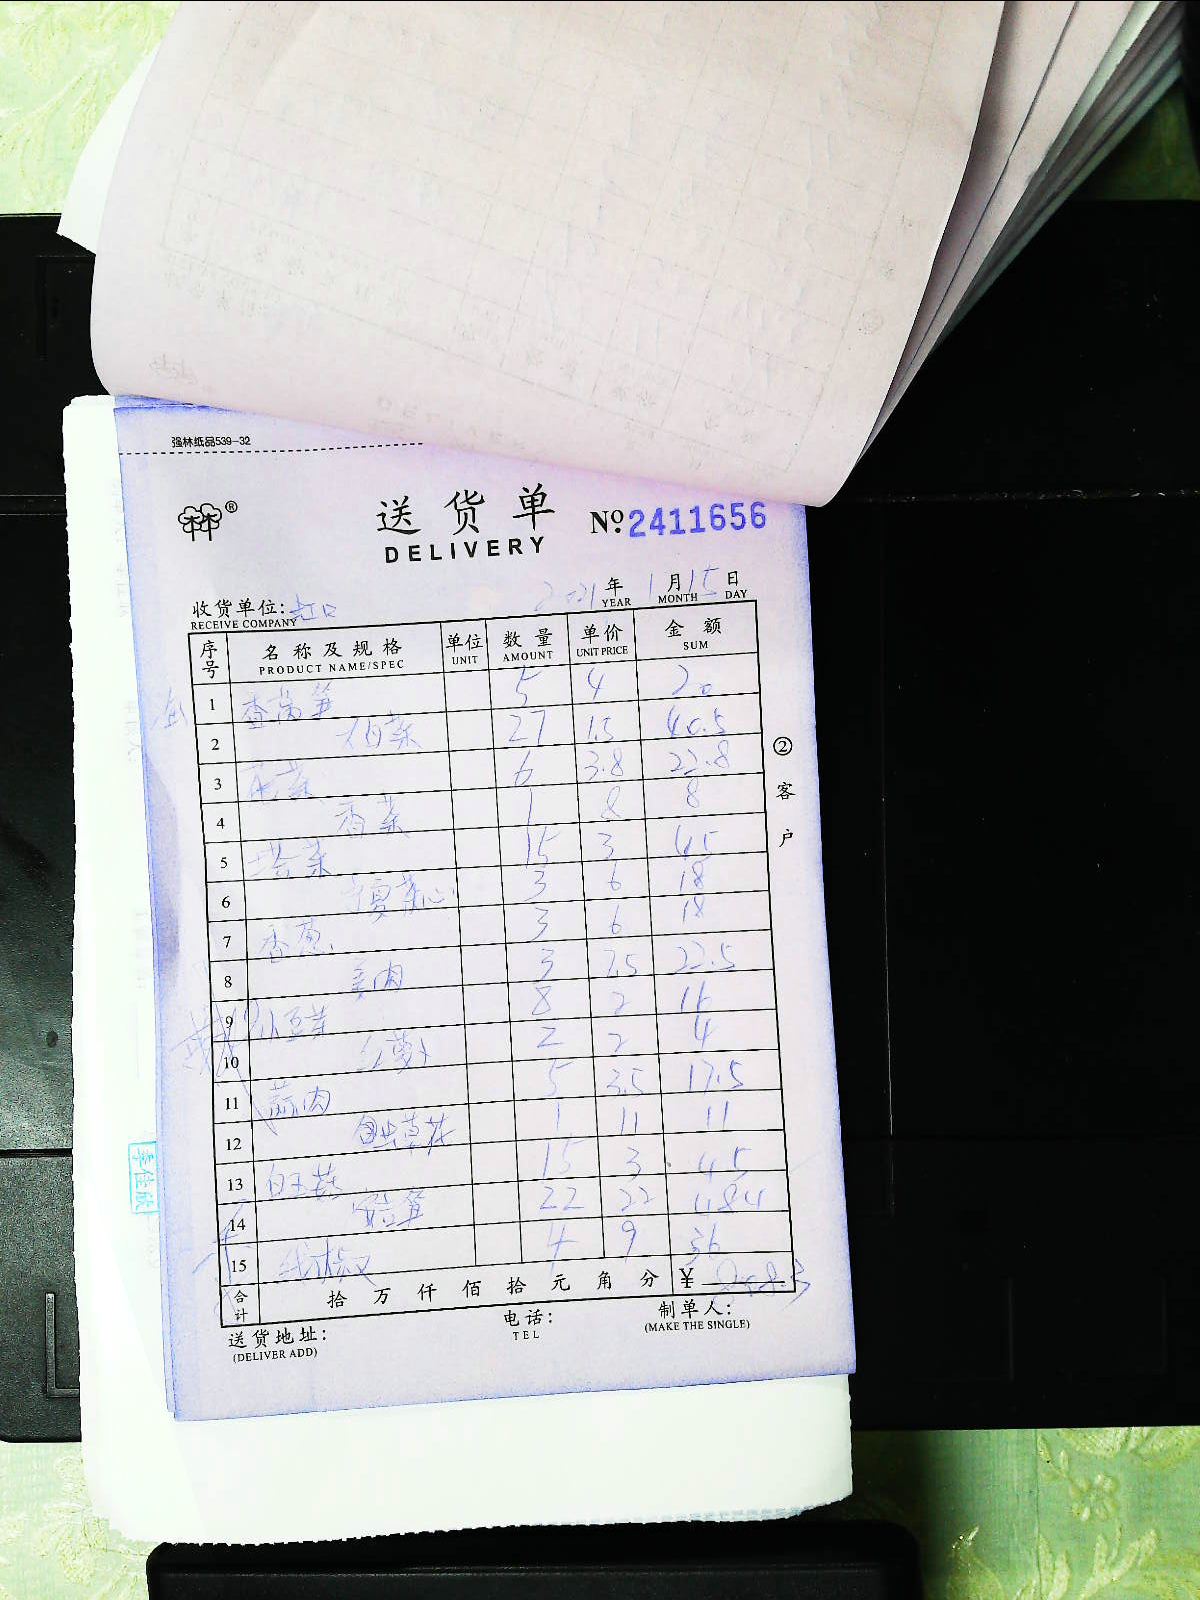 强林纸品539-32
送货单 №2411656
DELIVERY
2021年 1月15日
YEAR MONTH DAY
收货单位:虹口
RECEIVE COMPANY
序号 名称及规格 单位 数量 单价 金额
PRODUCT NAME/SPEC UNIT AMOUNT UNIT PRICE SUM
1 香莴笋 5 4 20
2 白菜 27 1.5 40.5
3 花菜 6 3.8 22.8
4 香菜 1 8 8
5 塔菜 15 3 45
6 菜心 3 6 18
7 香葱 3 6 18
8 肉 3 7.5 22.5
9 小豆芽 8 2 16
10 红萝卜 2 2 4
11 蒜肉 5 3.5 17.5
12 虫草花 1 11 11
13 白玉菇 15 3 45
14 笋 22 22 484
15 线椒 4 9 36
合计 拾 万 仟 佰 拾 元 角 分 ¥ 808.3
送货地址: 电话: 制单人:
(DELIVER ADD) TEL (MAKE THE SINGLE)
②客户
李佳欣